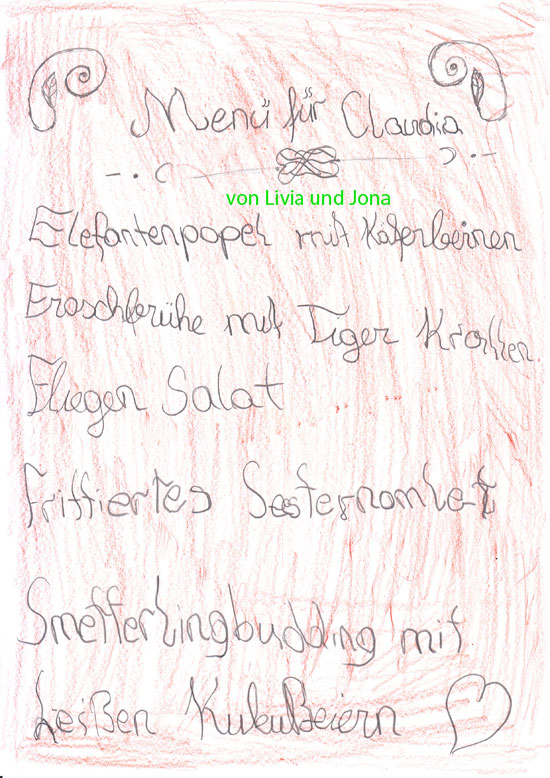 Menü für Claudia
von Livia und Jona
Elefantenpopel mit Kaferbeinen
Froschbrühe mit Tiger Krallen
Fliegen Salat
Frittiertes Seesternomlet
Smetterlingbudding mit
heißen Kukußeiern